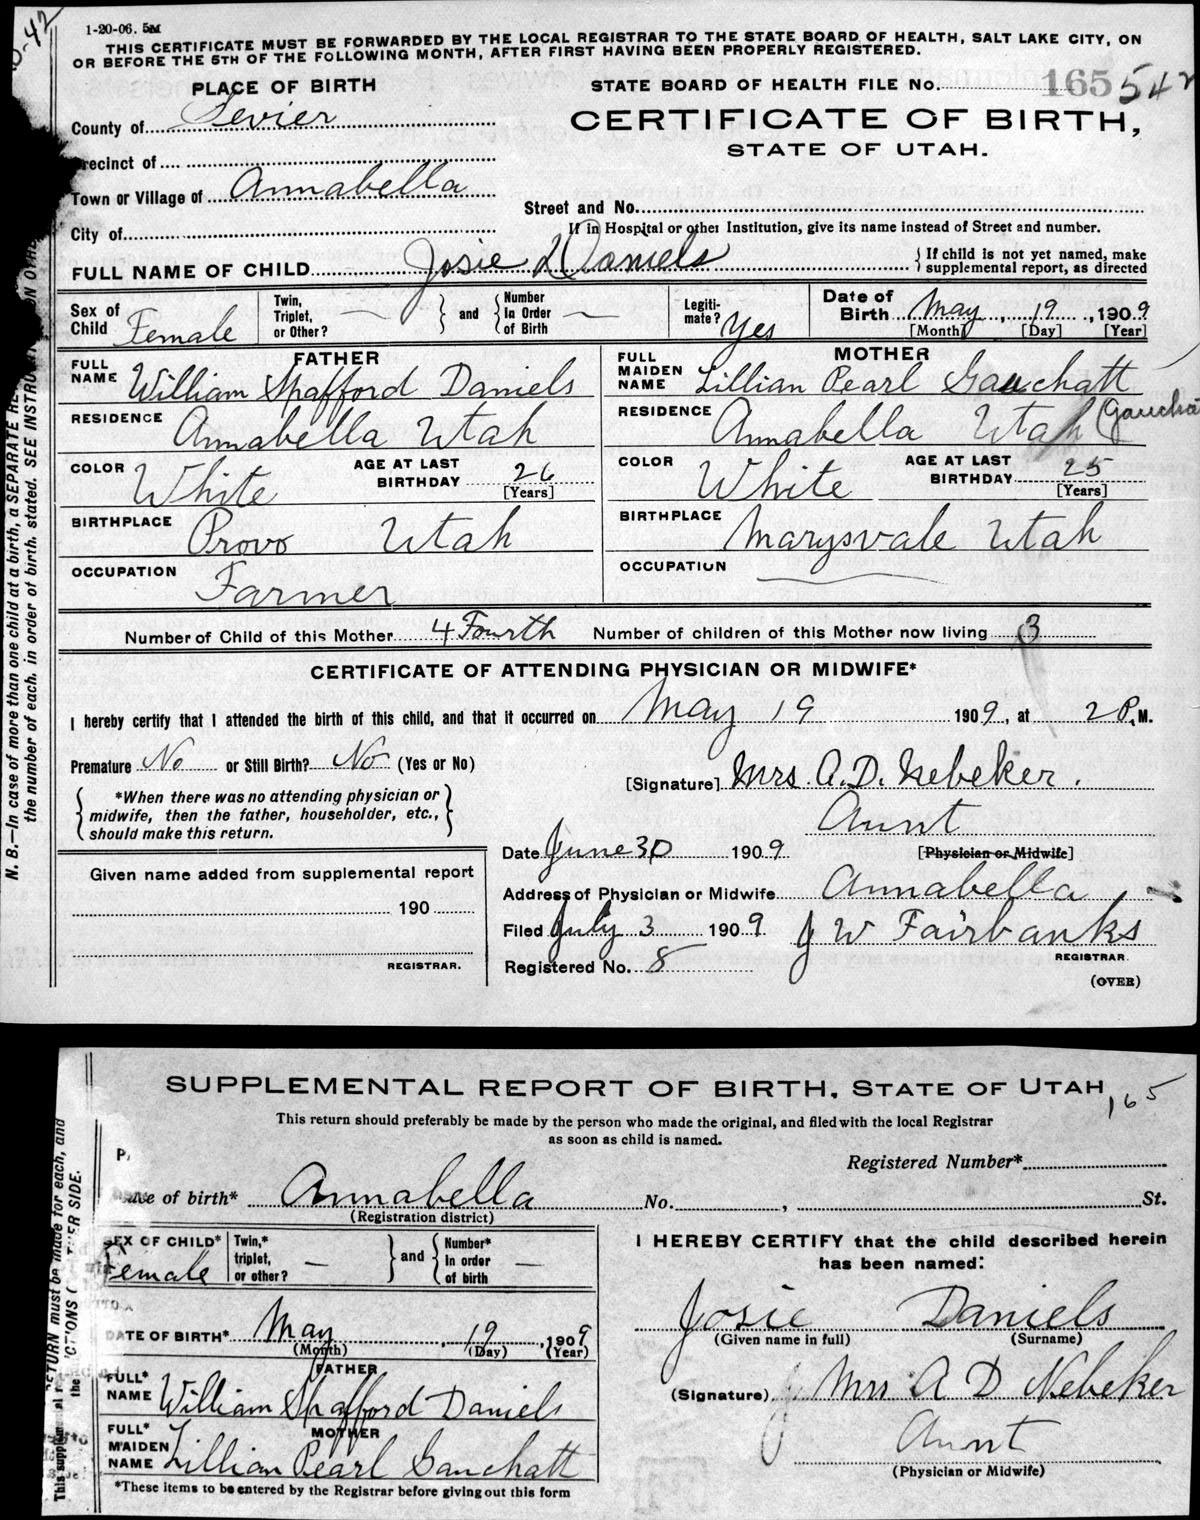 1-20-06. 5M
THIS CERTIFICATE MUST BE FORWARDED BY THE LOCAL REGISTRAR TO THE STATE BOARD OF HEALTH, SALT LAKE CITY, ON
OR BEFORE THE 5TH OF THE FOLLOWING MONTH, AFTER FIRST HAVING BEEN PROPERLY REGISTERED.
PLACE OF BIRTH
STATE BOARD OF HEALTH FILE No. 165 542
County of Sevier
CERTIFICATE OF BIRTH,
STATE OF UTAH.
Precinct of
Town or Village of Annabella
Street and No.
City of
If in Hospital or other Institution, give its name instead of Street and number.
FULL NAME OF CHILD Josie Daniels
{If child is not yet named, make
supplemental report, as directed
Sex of Child Female
Twin, Triplet, or Other? —
and
Number In Order of Birth —
Legiti-mate? Yes
Date of Birth May 19, 1909
[Month] [Day] [Year]
FATHER
FULL NAME William Spafford Daniels
RESIDENCE Annabella Utah
COLOR White AGE AT LAST BIRTHDAY 26 [Years]
BIRTHPLACE Provo Utah
OCCUPATION Farmer
MOTHER
FULL MAIDEN NAME Lillian Pearl Gauchatt
RESIDENCE Annabella Utah
COLOR White AGE AT LAST BIRTHDAY 25 [Years]
BIRTHPLACE Marysvale Utah
OCCUPATION
Number of Child of this Mother 4 Fourth Number of children of this Mother now living 3
CERTIFICATE OF ATTENDING PHYSICIAN OR MIDWIFE*
I hereby certify that I attended the birth of this child, and that it occurred on May 19 1909, at 2 P.M.
Premature No or Still Birth? No (Yes or No)
[Signature] Mrs. A.D. Nebeker.
{*When there was no attending physician or
midwife, then the father, householder, etc.,
should make this return.}
Aunt
[Physician or Midwife]
Date June 30 1909
Given name added from supplemental report
190
REGISTRAR.
Address of Physician or Midwife Annabella
Filed July 3 1909 J W Fairbanks
REGISTRAR.
Registered No. 8
(OVER)
N. B.—In case of more than one child at a birth, a SEPARATE
the number of each, in order of birth, stated. SEE
SUPPLEMENTAL REPORT OF BIRTH, STATE OF UTAH
165
This return should preferably be made by the person who made the original, and filed with the local Registrar
as soon as child is named.
Registered Number*
of birth* Annabella No. , St.
(Registration district)
SEX OF CHILD* Female
Twin,* triplet, or other? —
and
Number* In order of birth —
DATE OF BIRTH* May 19, 1909
(Month) (Day) (Year)
FATHER
FULL* NAME William Spafford Daniels
MOTHER
FULL* MAIDEN NAME Lillian Pearl Gauchatt
*These items to be entered by the Registrar before giving out this form
I HEREBY CERTIFY that the child described herein
has been named:
Josie Daniels
(Given name in full) (Surname)
(Signature) Mrs A D Nebeker
Aunt
(Physician or Midwife)